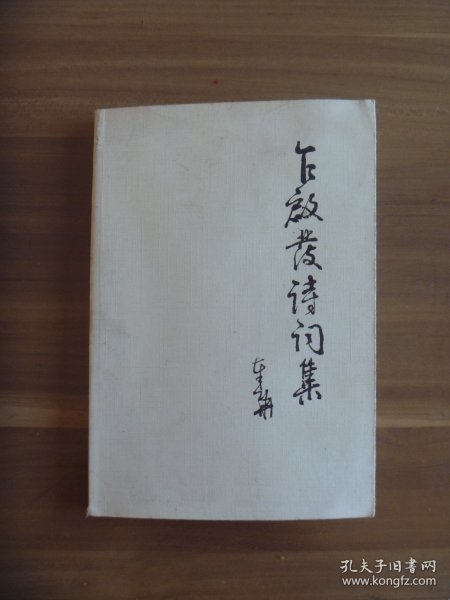 啟發诗词集
孔夫子旧书网
www.kongfz.com